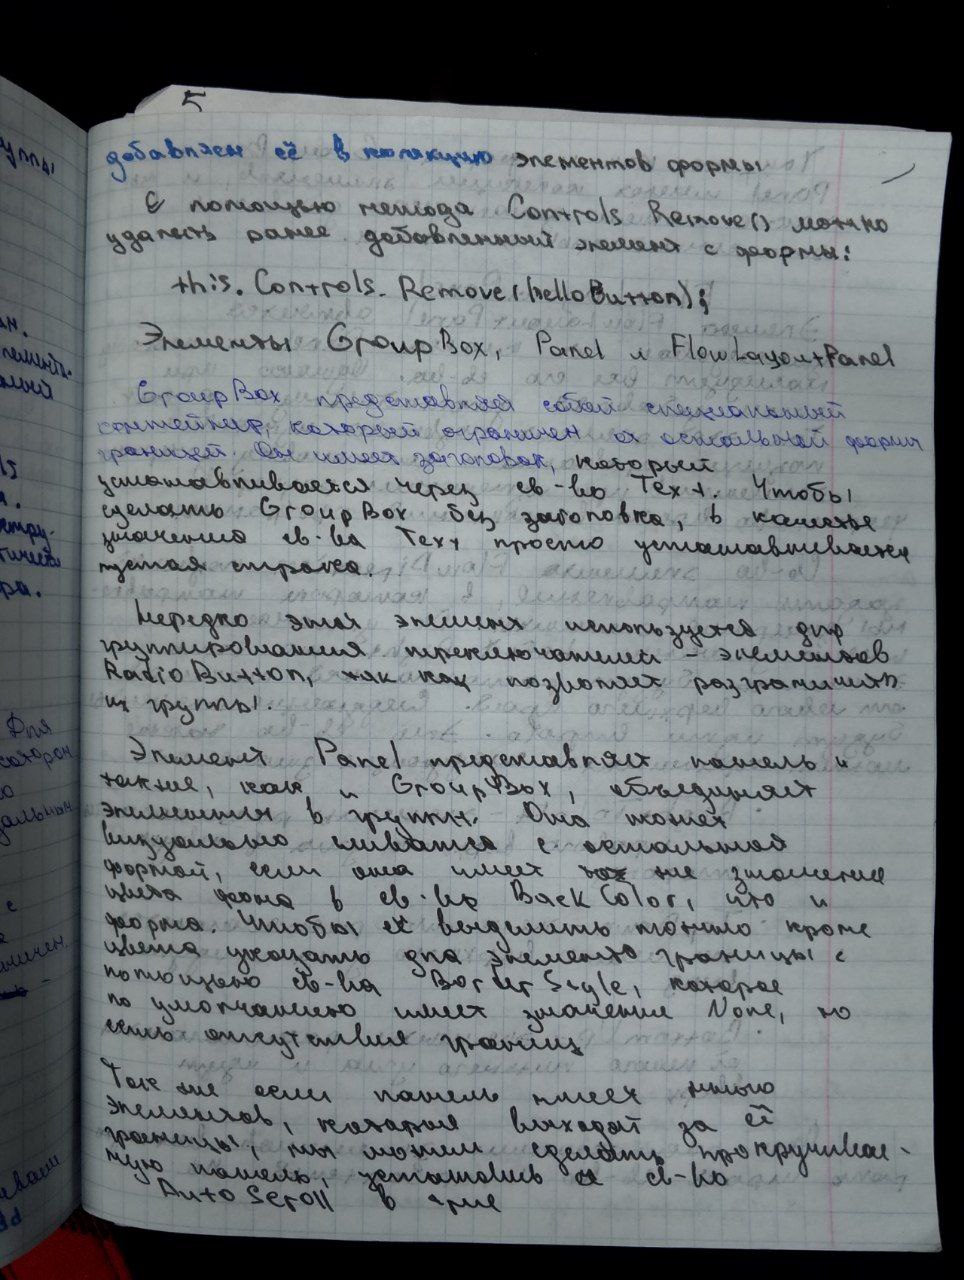 5
добавляем её в коллекцию элементов формы
С помощью метода Controls Remove() можно
удалить ранее добавленный элемент с формы:
this. Controls. Remove(helloButton);
Элементы GroupBox, Panel и FlowLayoutPanel
GroupBox представляет собой специальный
контейнер, который ограничен от остальной формы
границей. Он имеет заголовок, который
устанавливается через св-во Text. Чтобы
сделать GroupBox без заголовка, в качестве
значения св-ва Text просто устанавливается
пустая строка.
Нередко этот элемент используется для
группирования переключателей - элементов
RadioButton, так как позволяет разграничить
их группы.
Элемент Panel представляет панель и
также, как и GroupBox, объединяет
элементы в группы. Она может
визуально сливаться с остальной
формой, если она имеет же значение
цвета фона в св-во BackColor, что и
форма. Чтобы её выделить можно кроме
цвета указать для элемента границы с
помощью св-ва BorderStyle, которое
по умолчанию имеет значение None, то
есть отсутствие границ
Так же если панель имеет много
элементов, которые выходят за её
границы, мы можем сделать прокручивае-
мую панель, установив св-во
AutoScroll в true